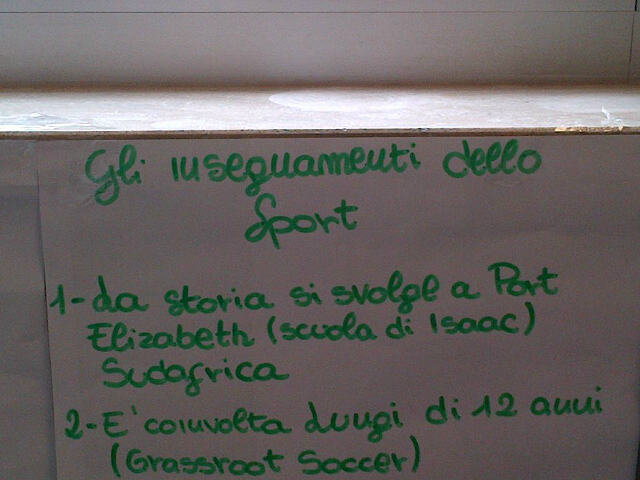 Gli insegnamenti dello
Sport
1-La storia si svolge a Port
Elizabeth (scuola di Isaac)
Sudafrica
2-E' coinvolta Lungi di 12 anni
(Grassroot Soccer)